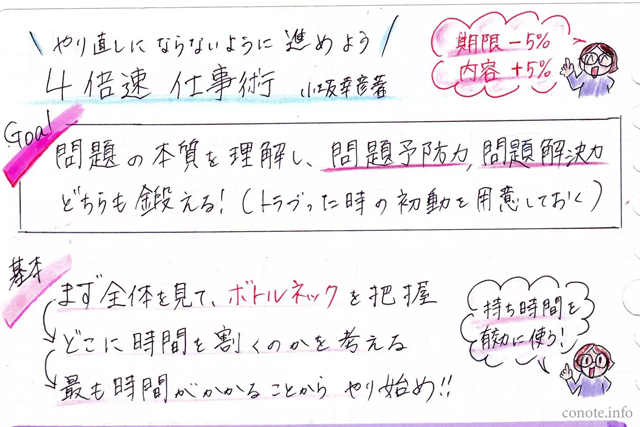 \ やり直しにならないように進めよう /
4倍速 仕事術 小坂幸彦著
期限 −5%
内容 +5%
Goal
問題の本質を理解し、問題予防力,問題解決力
どちらも鍛える!(トラブった時の初動を用意しておく)
基本
まず全体を見て、ボトルネックを把握
どこに時間を割くのかを考える
最も時間がかかることからやり始め!!
持ち時間を
有効に使う!
conote.info